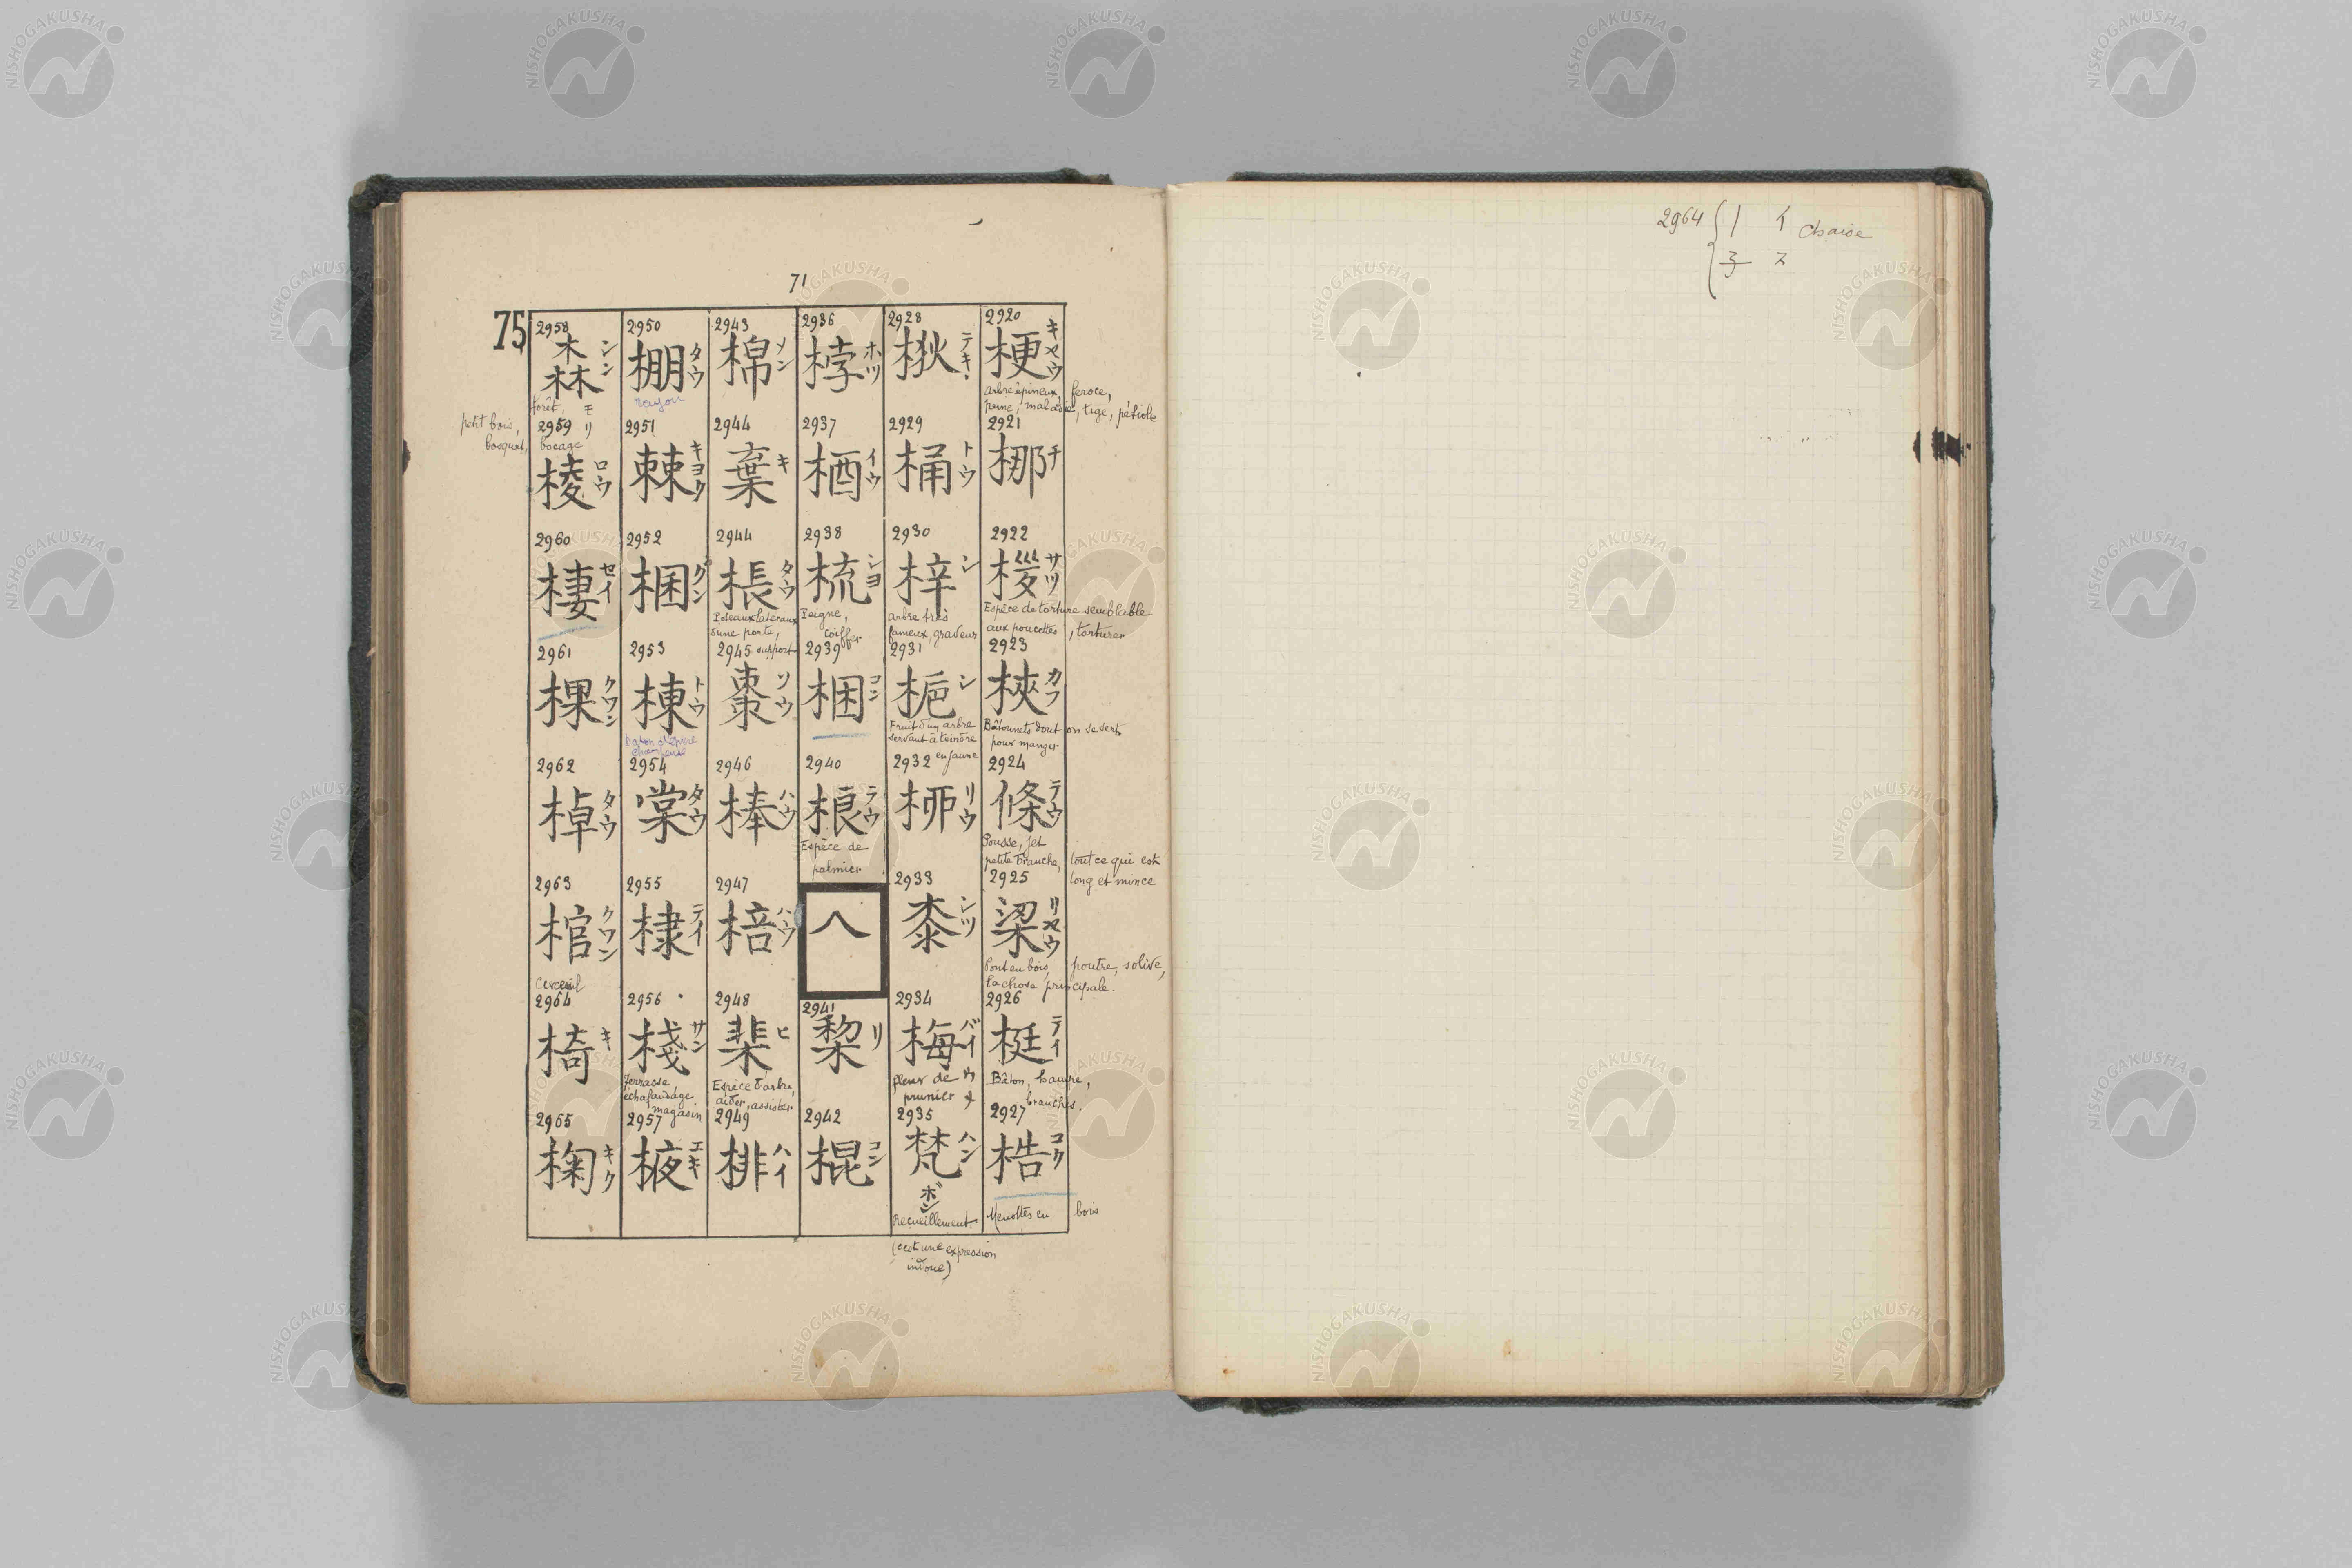 71
75
2920
梗 キヤウ
arbre épineux, feroce,
tige, pétiole
2921
梛 チ
2922
サツ
Espèce de torture semblable
aux poucettes, torturer
2923
梜 カフ
Bâtonnets dont on se sert
pour manger
2924
條 テウ
Pousse, jet
petite branche, tout ce qui est
long et mince
2925
梁 リヤウ
Pont en bois, poutre, solive,
la chose principale.
2926
梃 テイ
Bâton, hampe,
branches.
2927
梏 コク
Menottes en bois
2928
梑 テキ
2929
桶 トウ
2930
梓 シ
arbre très
fameux, graveur
2931
梔 シ
Fruit d'un arbre
servant à teindre
en jaune
2932
桺 リウ
2933
桼 シツ
2934
梅 バイ
fleur de
prunier
2935
梵 ハン
ボン
Recueillement
(c'est une expression
indoue)
2936
桲 ホツ
2937
梄 イウ
2938
梳 シヨ
Peigne,
coiffer
2939
梱 コン
2940
桹 ラウ
Espèce de
palmier
八
2941
棃 リ
2942
棍 コン
2943
棉 メン
2944
棄 キ
2944
棖 タウ
Poteaux lateraux
d'une porte,
support
2945
棗 ソウ
2946
棒 ハウ
2947
棓 ハウ
2948
棐 ヒ
Espèce d'arbre,
aider, assister
2949
棑 ハイ
2950
棚 タウ
rayon
2951
棘 キヨク
2952
棞 クン
2953
棟 トウ
2954
棠 タウ
2955
棣 テイ
2956
棧 サン
Terrasse,
échafaudage
magasin
2957
棭 エキ
2958
森 シン
モリ
forêt,
petit bois,
bosquet, bocage
2959
棱 ロウ
2960
棲 セイ
2961
棵 クワン
2962
棹 タウ
2963
棺 クワン
Cerceuil
2964
椅 キ
2965
椈 キク
2964 { | イ chaise
子 ス